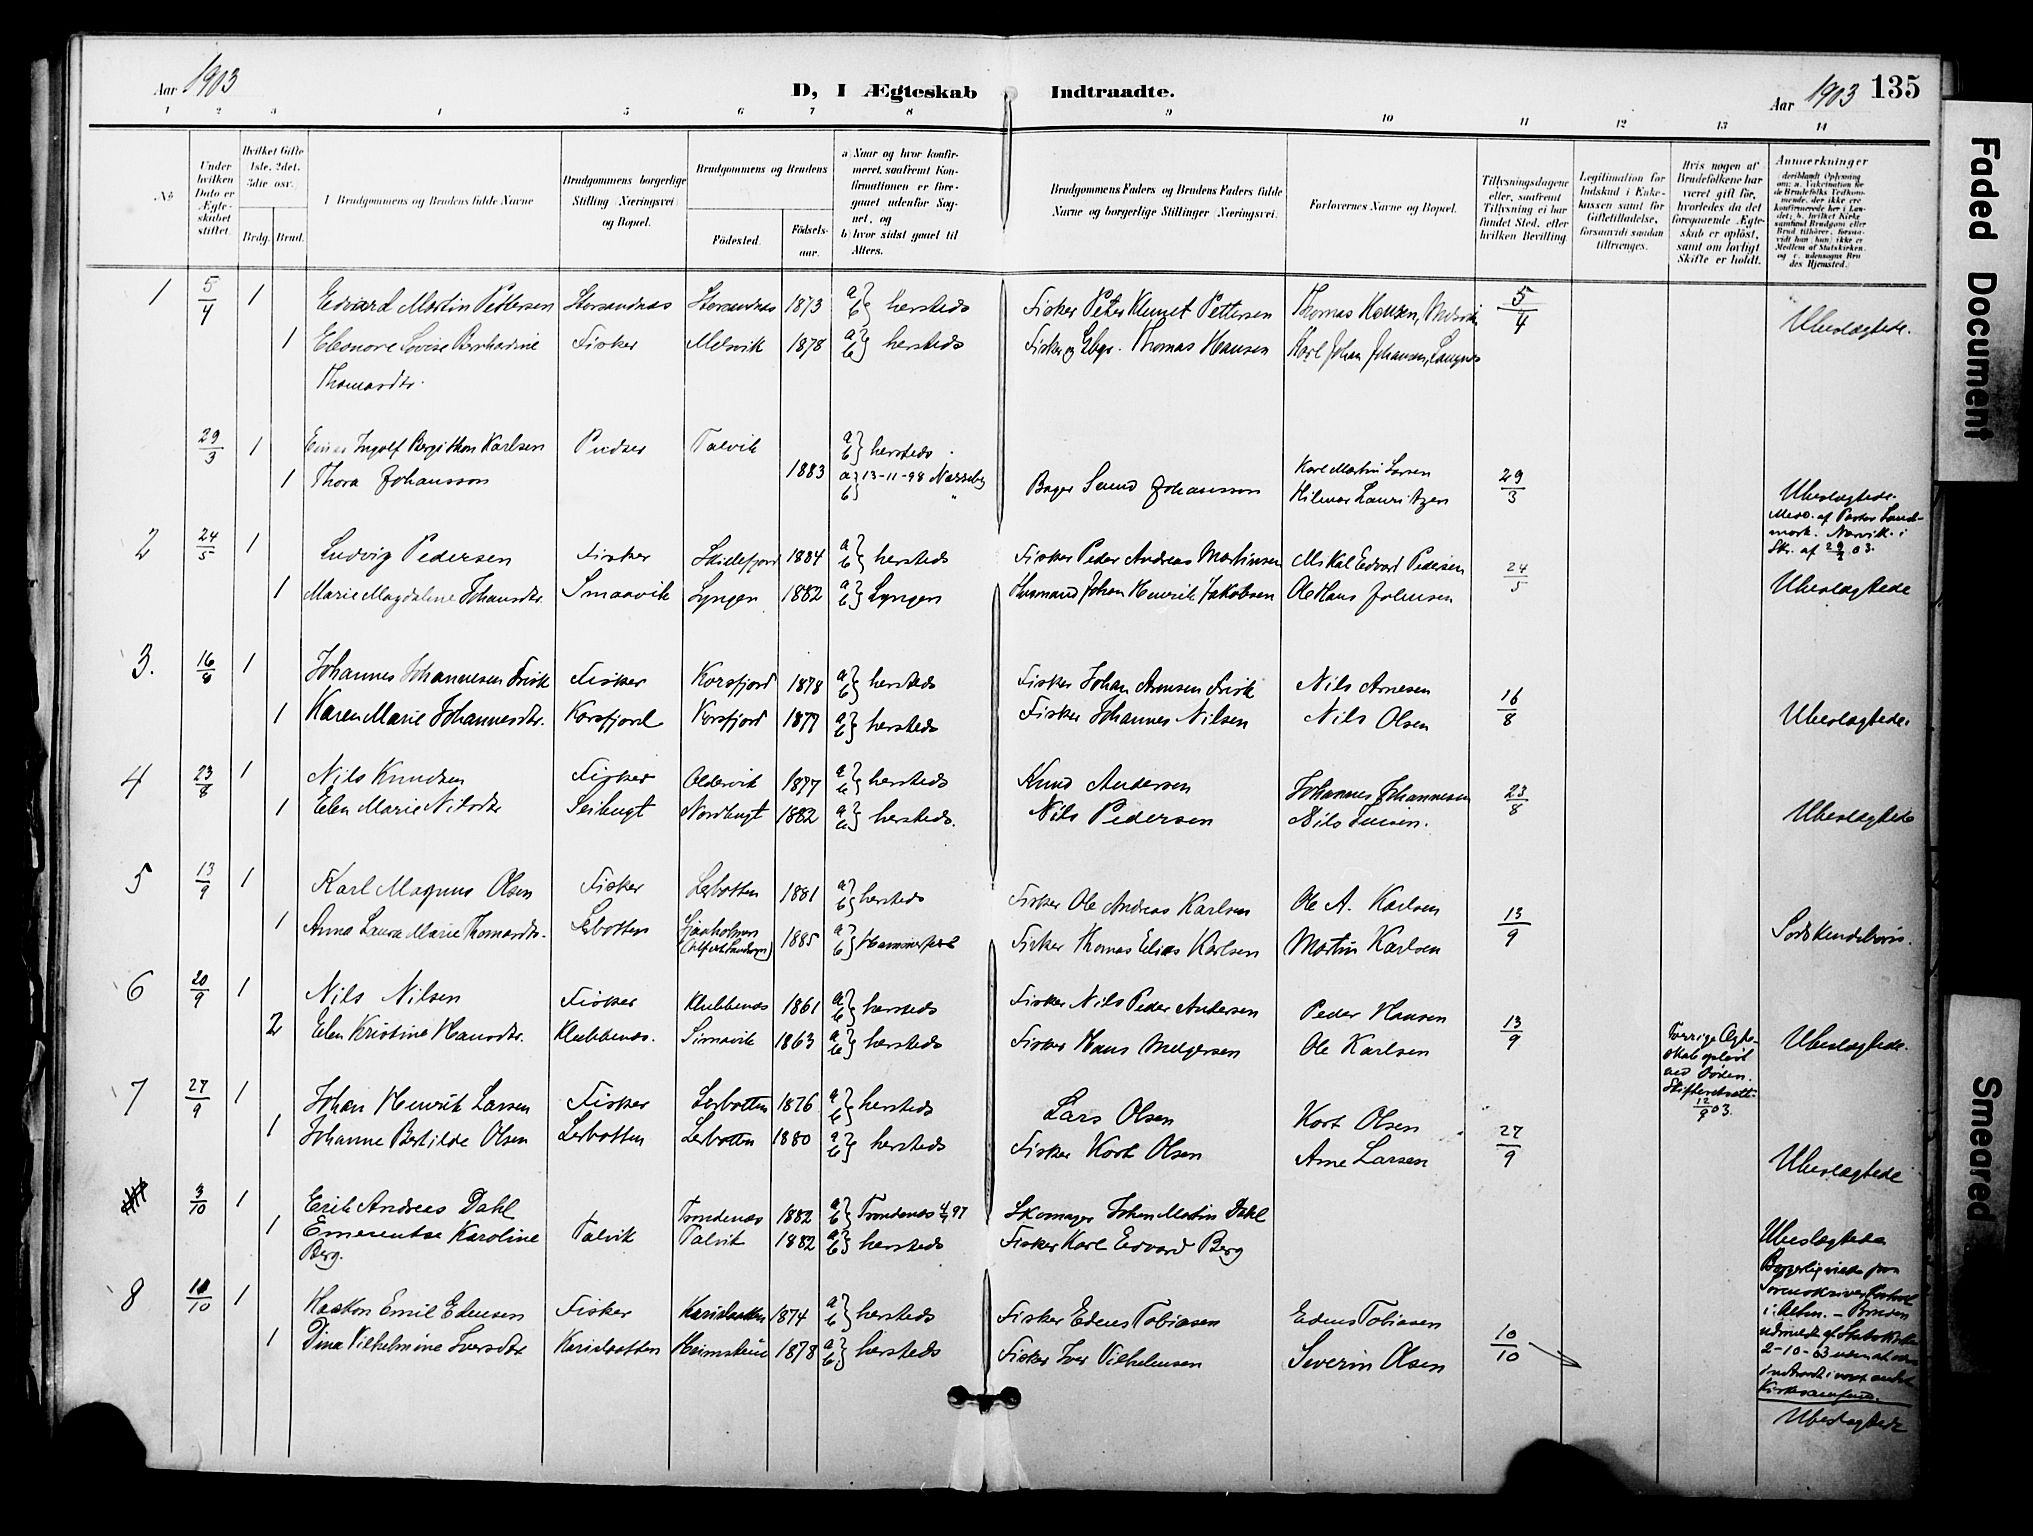 Aar 1903
D, I Ægteskab Indtraadte.
Aar 1903 135
1 2 3 4 5 6 7 8 9 10 11 12 13 14
No
Under hvilken Dato er Ægteskabet stiftet.
Hvilket Gifte 1ste, 2det, 3die osv.
Brdg. Brud.
Brudgommens og Brudens fulde Navne
Brudgommens borgerlige Stilling Næringsvei og Bopæl.
Brudgommens og Brudens
Födested. Födselsaar.
a) Naar og hvor konfirmeret, saafremt Konfirmationen er foregaaet udenfor Sognet, og
b) hvor sidst gaaet til Alters.
Brudgommens Faders og Brudens Faders fulde Navne og borgerlige Stillinger Næringsvei.
Forlovernes Navne og Bopæl.
Tillysningsdagene eller, saafremt Tillysning ei har fundet Sted, efter hvilken Bevilling
Legitimation for Indskud i Enkekassen samt for Giftetilladelse, forsaavidt saadan tiltrænges.
Hvis nogen af Brudefolkene har været gift för, hvorledes da det foregaaende Ægteskab er oplöst, samt om lovligt Skifte er holdt.
Anmerkninger
1 5/4 1 Edvard Martin Pettersen Storsandnæs Storsandnæs 1873 a} b} hersteds Fisker Peter Klemet Pettersen Thomas Hansen, 5/4 Ubeslægtede.
1 Eleonore Lovise Bernhardine Fisker Melsvik 1878 a} b} hersteds Fisker og Gbgr. Thomas Hansen Karl Johan Johansen, Langnes
Thomasdtr.
29/3 1 Einar Ingolf Bergithon Karlsen Pudser Talvik a} b} hersteds Karl Martin Larsen 29/3
1 Thora Johansson 1883 a} 13-11-98 b} Bager Johansson Hilmar Lauritzen Ubeslægtede.
Medd. af Pastor Landmark. Narvik i Skr. af 29/3 03.
2 24/5 1 Ludvig Pedersen Fisker Skillefjord 1884 a} b} hersteds Fisker Peder Andreas Mortensen Mikal Edvard Pedersen 24/5
1 Marie Magdalene Johansdtr. Smaavik Lyngen 1882 a} b} Lyngen Husmand Johan Henrik Jakobsen Ole Hans Johnsen Ubeslægtede
3. 16/8 1 Johannes Johannesen Frisk Fisker Korsfjord 1878 a} b} hersteds Fisker Johan Arnesen Frisk Nils Arnesen 16/8
1 Karen Marie Johannesdtr. Korsfjord Korsfjord 1877 a} b} hersteds Fisker Johannes Nilsen Nils Olsen Ubeslægtede.
4 23/8 1 Nils Knudsen Fisker Oldervik 1877 a} b} hersteds Knud Andersen Johannes Johannesen 23/8
1 Elen Marie Nilsdtr Seibugt Nordbugt 1882 a} b} hersteds. Nils Pedersen Nils Ubeslægtede
5 13/9 1 Karl Magnus Olsen Fisker Lerbotten 1881 a} b} hersteds Fisker Ole Andreas Karlsen Ole A. Karlsen 13/9
1 Anna Laura Marie Thomasdtr. Lerbotten Sjaaholmen 1885 a} b} Hammerfest Fisker Thomas Elias Karlsen Martin Karlsen Södskendebörn.
6 20/9 1 Nils Nilsen Fisker Klubbenæs 1861 a} b} hersteds Fisker Nils Peder Andersen Peder Hansen 13/9
2 Elen Kristine Hansdtr. Klubbenæs. Simavik 1863 a} b} hersteds Fisker Hans Ole Karlsen Forrige Ægteskab oplöst ved Döden. Skifteretsatt. 12/9 03. Ubeslægtede.
7 27/9 1 Johan Henrik Larsen Fisker Lerbotten 1876 a} b} hersteds Lars Olsen Kort Olsen 27/9
1 Johanne Bertilde Olsen Lerbotten Lerbotten 1880 a} b} hersteds Fisker Kort Olsen Arne Larsen Ubeslægtede
3/10 1 Erik Andreas Dahl Trondenæs 1882 a} b} Trondenæs Skomager Johan Martin Dahl
1 Emerentse Karoline Talvik Talvik 1882 a} b} hersteds Fisker Karl Edvard Berg Ubeslægtede
Berg. Borgerlig viede paa Sorenskriver i Alten. - Bruden udmeldt af Statskirken 2-10-03 uden at være indtraadt i noget andet Kirkesamfund.
8 11/10 1 Haakon Emil Edensen Fisker Karislaatten 1874 a} b} hersteds Fisker Edens Tobiasen Edens Tobiasen 10/10
1 Dina Vilhelmine Iversdtr Karislaatten 1878 a} b} hersteds Fisker Iver Vilhelmsen Severin Olsen Ubeslægtede
Faded Document
Smeared